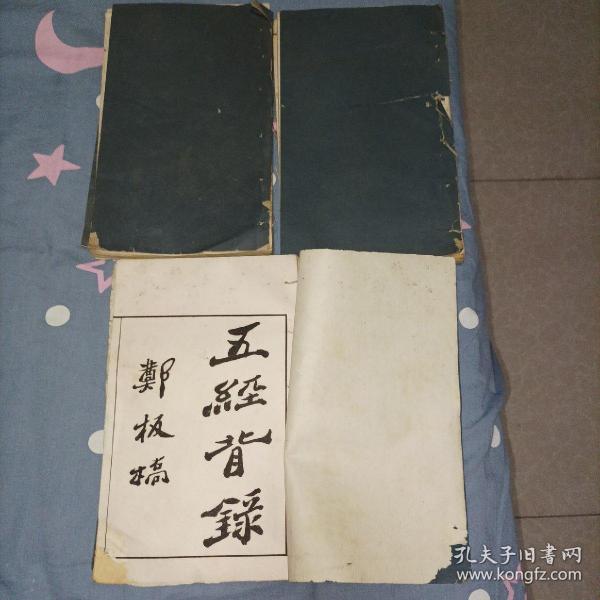 五經背錄
鄭板橋
孔夫子旧書网
www.kongfz.com